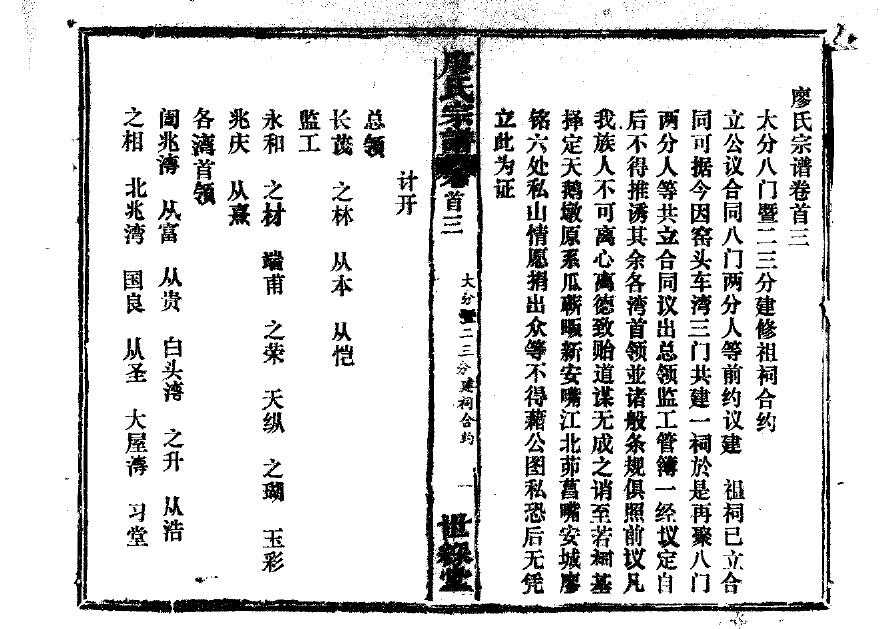 廖氏宗谱卷首三
大分八门暨二三分建修祖祠合约
立公议合同八门两分人等前约议建　祖祠已立合
同可据今因窑头车湾三门共建一祠於是再聚八门
两分人等共立合同议出总领监工管簿一经议定自
后不得推诱其余各湾首领並诸般条规俱照前议凡
我族人不可离心离德致贻道谋无成之诮至若祠基
择定天鹅墩原系瓜蕲畈新安嘴江北茆菖嘴安城廖
铭六处私山情愿捐出众等不得藉公图私恐后无凭
立此为证
廖氏宗谱 卷首三 大分暨二三分建祠合约 一 世綵堂
计开
总领
长茂　之林　从本　从恺
监工
永和　之材　端甫　之荣　天纵　之瑚　玉彩
兆庆　从熹
各湾首领
阁兆湾　从富　从贵　白头湾　之升　从浩
之相　北兆湾　国良　从圣　大屋湾　习堂